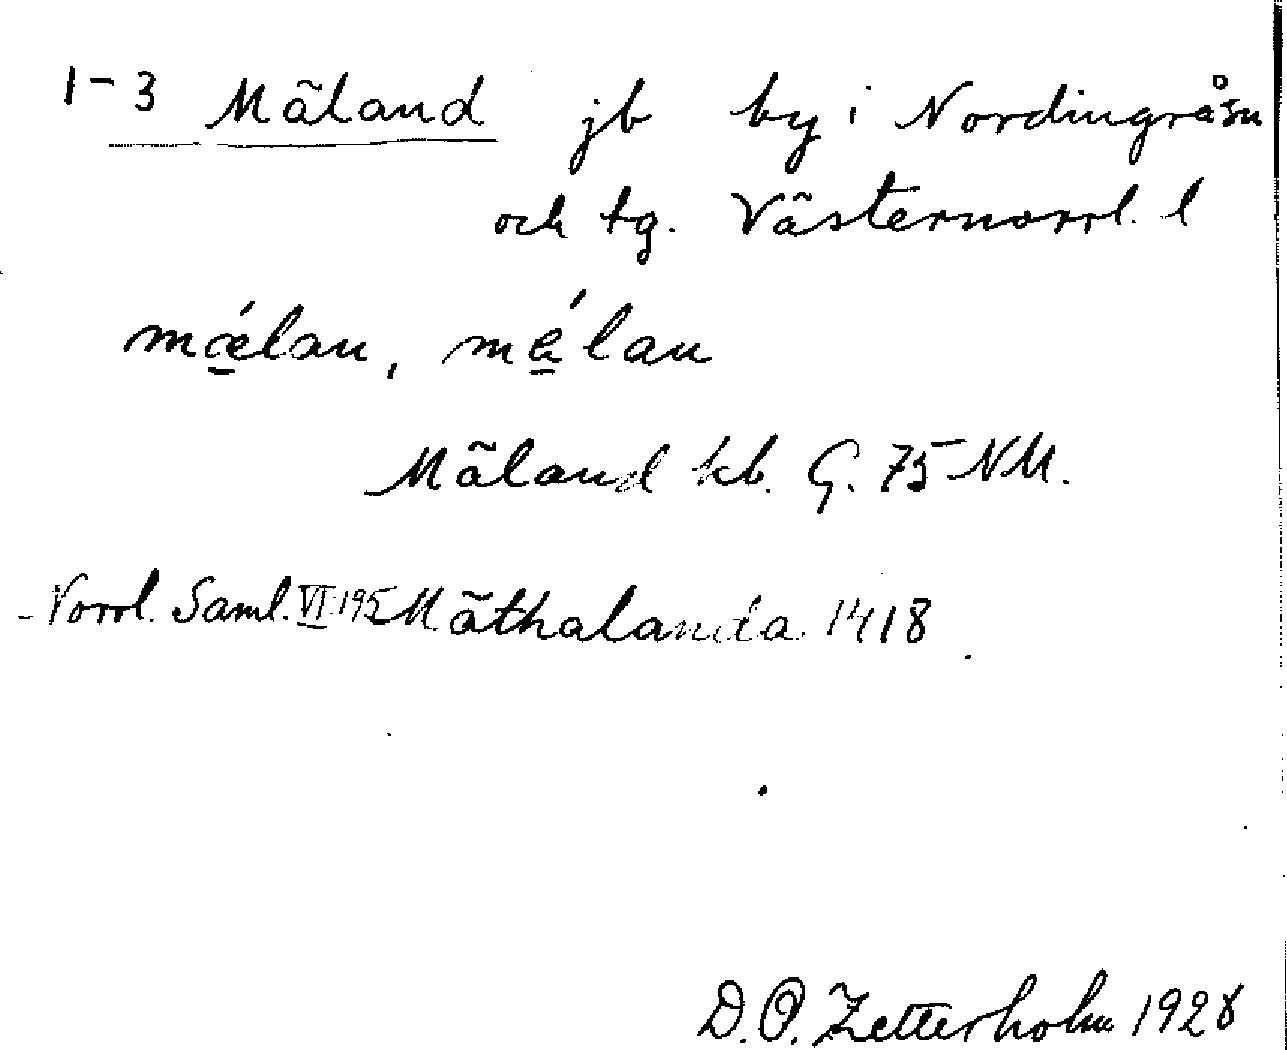 1-3 Mäland jb by i Nordingrå sn
och tg. Västernorrl. l
mǽlan, mélan
Mäland kb. G. 75 NM.
Norrl. Saml. VI 195 Mäthalanda 1418
D. O. Zetterholm 1928